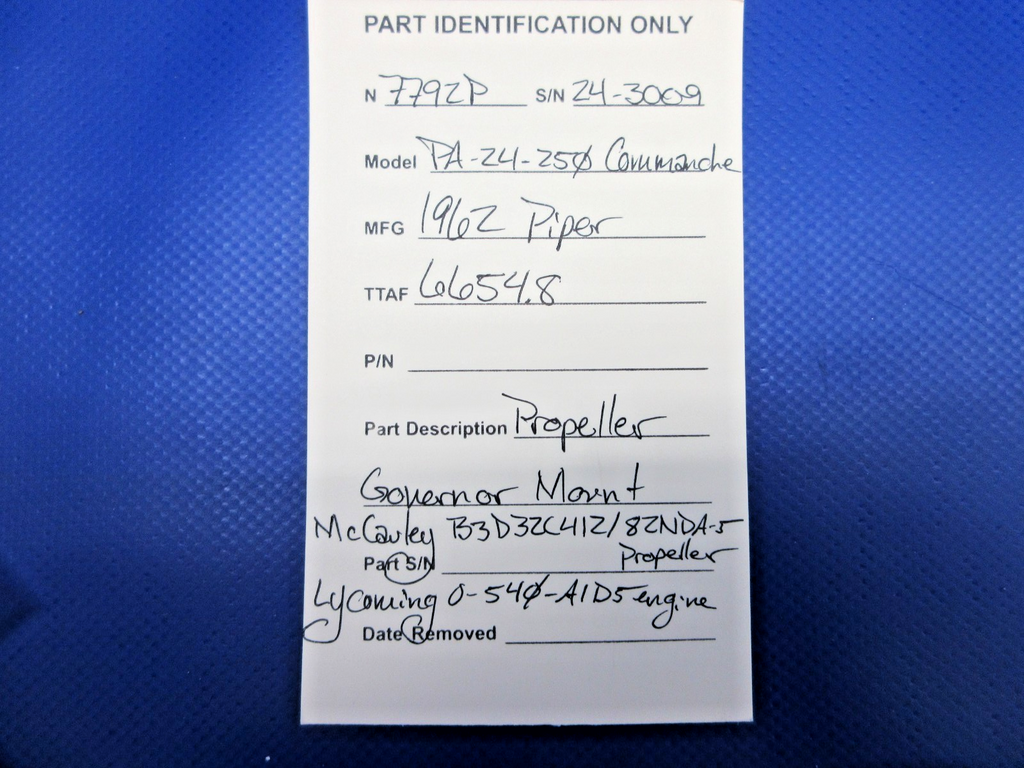 PART IDENTIFICATION ONLY
N 7792P S/N 24-3009
Model PA-24-250 Commanche
MFG 1962 Piper
TTAF 6654.8
P/N
Part Description Propeller
Governor Mount
McCauley B3D32C412/82NDA-5
Part S/N Propeller
Lycoming O-540-A1D5 engine
Date Removed